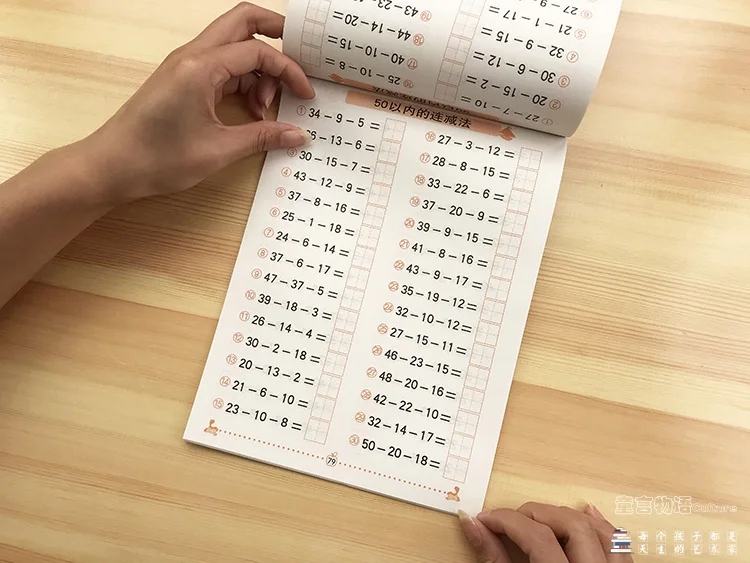 ⑲ 43-23-
⑱ 44-14-20=
⑰ 40-10-15=
⑯ 25-10-8=
⑥ 27-9-
⑤ 21-1-17=
④ 32-9-15=
③ 30-6-12=
② 20-15-2=
① 27-7-10=
50以内的连减法
① 34-9-5=
6-13-6=
③ 30-15-7=
④ 43-12-9=
⑤ 37-8-16=
⑥ 25-1-18=
⑦ 24-6-14=
⑧ 37-6-17=
⑨ 47-37-5=
⑩ 39-18-3=
⑪ 26-14-4=
⑫ 30-2-18=
⑬ 20-13-2=
⑭ 21-6-10=
⑮ 23-10-8=
⑯ 27-3-12=
⑰ 28-8-15=
⑱ 33-22-6=
⑲ 37-20-9=
⑳ 39-9-15=
㉑ 41-8-16=
㉒ 43-9-17=
㉓ 35-19-12=
㉔ 32-10-12=
㉕ 27-15-11=
㉖ 46-23-15=
㉗ 48-20-16=
㉘ 42-22-10=
㉙ 32-14-17=
㉚ 50-20-18=
79
童言物语Culture
每个孩子都是
天生的艺术家